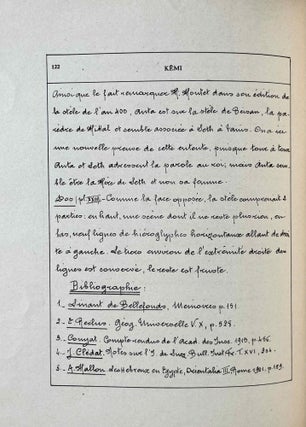 122
KÊMI
Ainsi que le fait remarquer M. Montet dans son édition de
la stèle de l'an 400, Anta est sur la stèle de Beisan, la pa-
rèdre de Mikal et semble associée à Seth à Tanis. On a eu
une nouvelle preuve de cette entente, puisque tour à tour
Anta et Seth adressent la parole au roi; mais Anta sem-
ble être la Mère de Seth et non sa femme.
Dos (pl. XXIII).- Comme la face opposée, la stèle comprenait 2
parties: en haut, une scène dont il ne reste plus rien, en
bas, neuf lignes de hiéroglyphes horizontaux allant de droi-
te à gauche. Le tiers environ de l'extrémité droite des
lignes est conservé, le reste est fruste.
Bibliographie:
1_ Linant de Bellefonds, Mémoires p. 151
2_ E. Reclus. Géog. Universelle V. X, p. 525.
3_ Couyat. Compte-rendus de l'Acad. des Insc. 1913. p. 456.
4_ J. Clédat. Notes sur l'I. de Suez Bull. Inst. Fr. T. XVI, 204.
5_ A. Mallon. Les Hébreux en Egypte, Orientalia III. Rome 1921. p. 159.